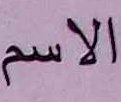 الاسم